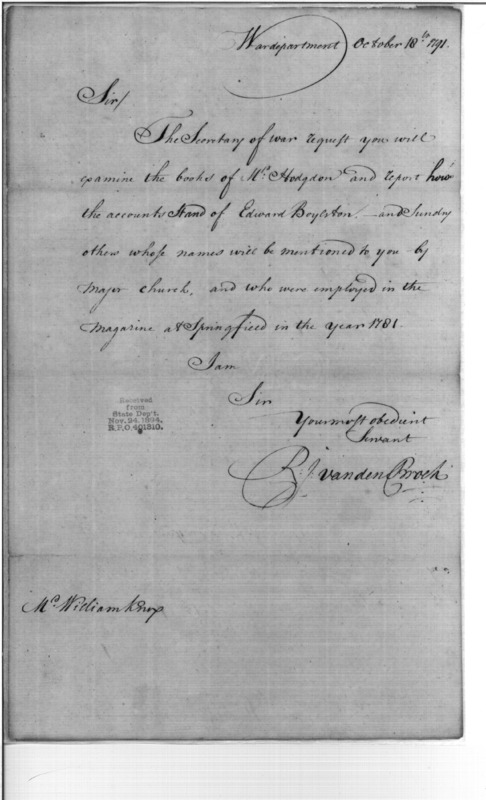 Wardepartment October 18th 1791.
Sir/
The Secretary of war request you will
examine the books of Mr. Hodgdon and report how
the accounts Stand of Edward Boylston. and Sundry
others whose names will be mentioned to you by
Major Church, and who were employed in the
Magazine at Springfield in the year 1781.
I am
Sir
Your most obedient
Servant
R. J. Vanden Broek
Received
from
State Dep't.
Nov. 24, 1894,
R.P.O. 401310.
Mr. William Knox